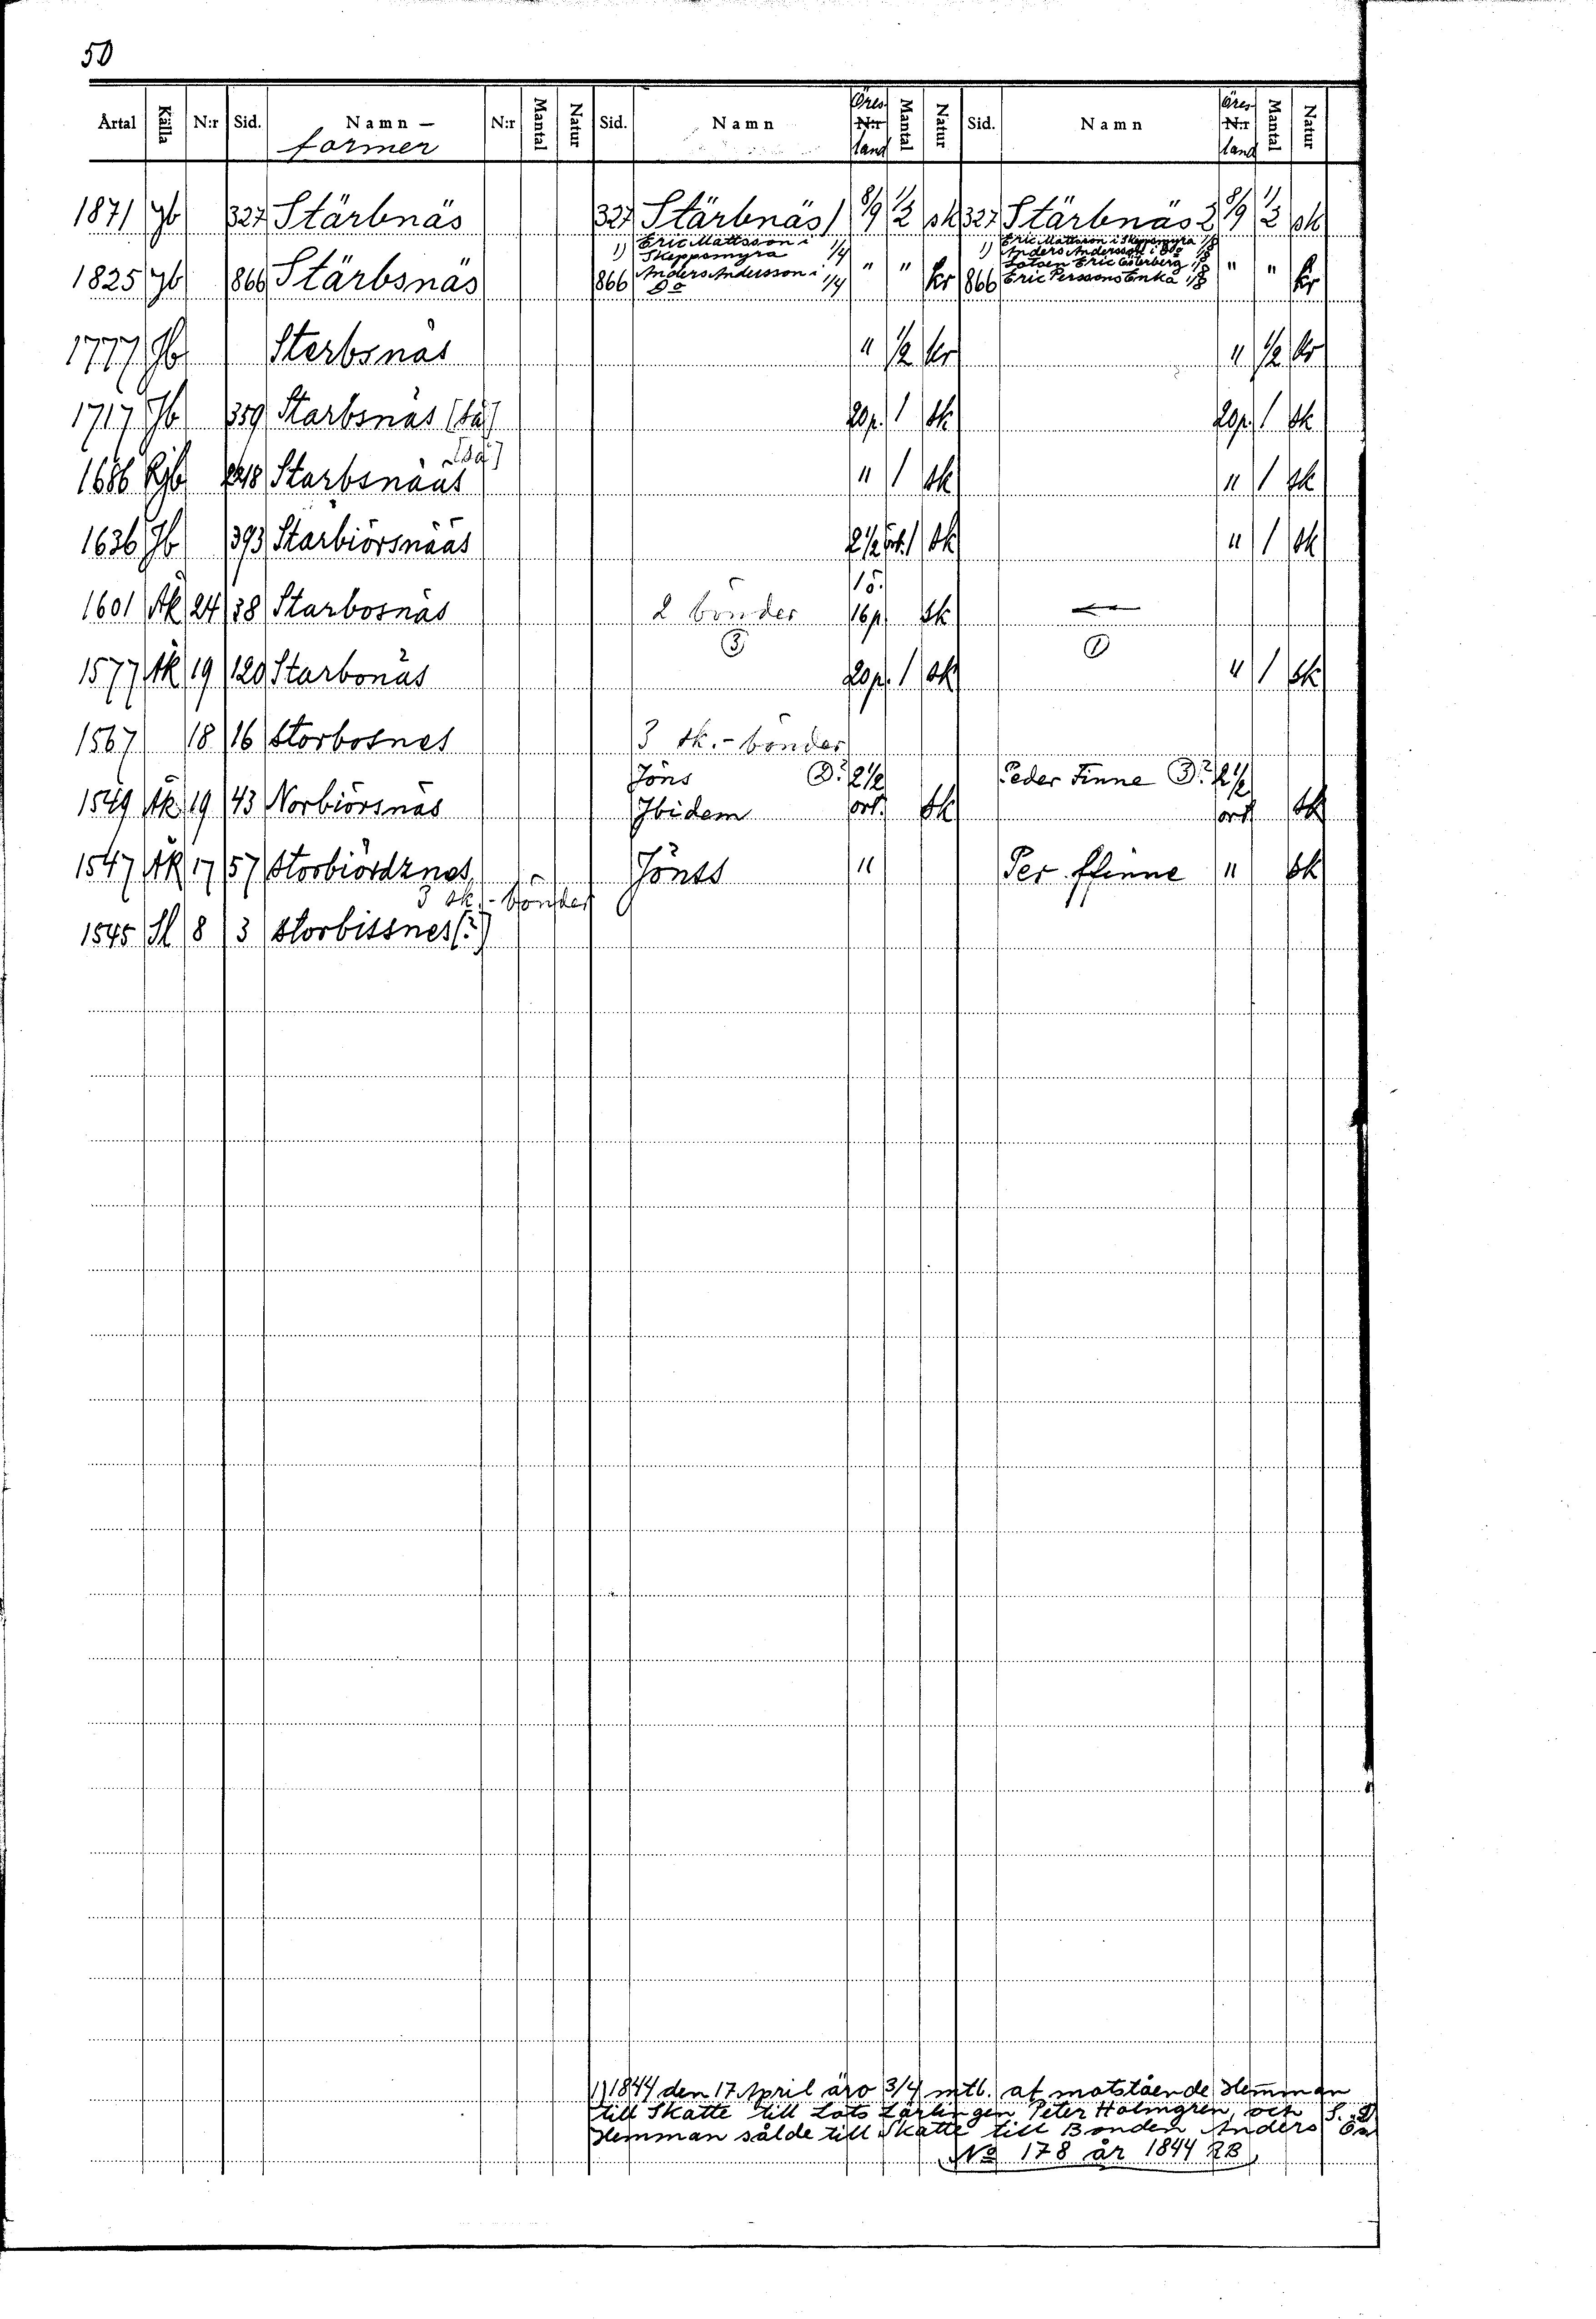 50
Årtal Källa N:r Sid. Namn- N:r Mantal Natur Sid. Namn Öres N:r land Mantal Natur Sid. Namn Öres N:r land Mantal Natur
former
1871 Jb 327 Stärbnäs 327 Stärbnäs 1 8/9 1/2 sk 327 Stärbnäs 2 8/9 1/2 sk
1) Eric Mattsson i Skeppsmyra 1/4 1) Eric Mattsson i Skeppsmyra 1/8
Anders Andersson i Do 1/8
Lotsen Eric Österberg 1/8
1825 Jb 866 Stärbsnäs 866 Anders Andersson i Do 1/4 " " kr 866 Eric Perssons Enka 1/8 " " kr
1777 Jb Sterbsnäs " 1/2 kr " 1/2 kr
1717 Jb 359 Starbsnäs 20 p. 1 sk 20 p. 1 sk
1686 Starbsnääs " 1 sk " 1 sk
1636 Jb 393 Starbiörsnääs 2 1/2 1 sk " 1 sk
1601 Åk 24 38 Starbosnäs 2 bönder 15. 16 p. sk
3 1
1577 Åk 19 120 Starbonäs 20 p. 1 sk " 1 sk
1567 18 16 storbosnes 3 sk.-bönder
Jöns 2 1/2 Peder Finne 2 1/2
1549 Åk 19 43 Norbiörsnäs Jbidem ort. sk ort sk
1547 Åk 17 57 storbiördznes Jönss " Per ffinne " sk
3 sk.-bönder
1545 Sl 8 3 storbissnes (?)
1) 1844 den 17 April äro 3/4 mtl. af motstående Hemman
till Skatte till Lots Lärlingen Peter Holmgren, och S. D.
Hemman sålde till Skatte till Bonden Anders
No 178 år 1844 RB